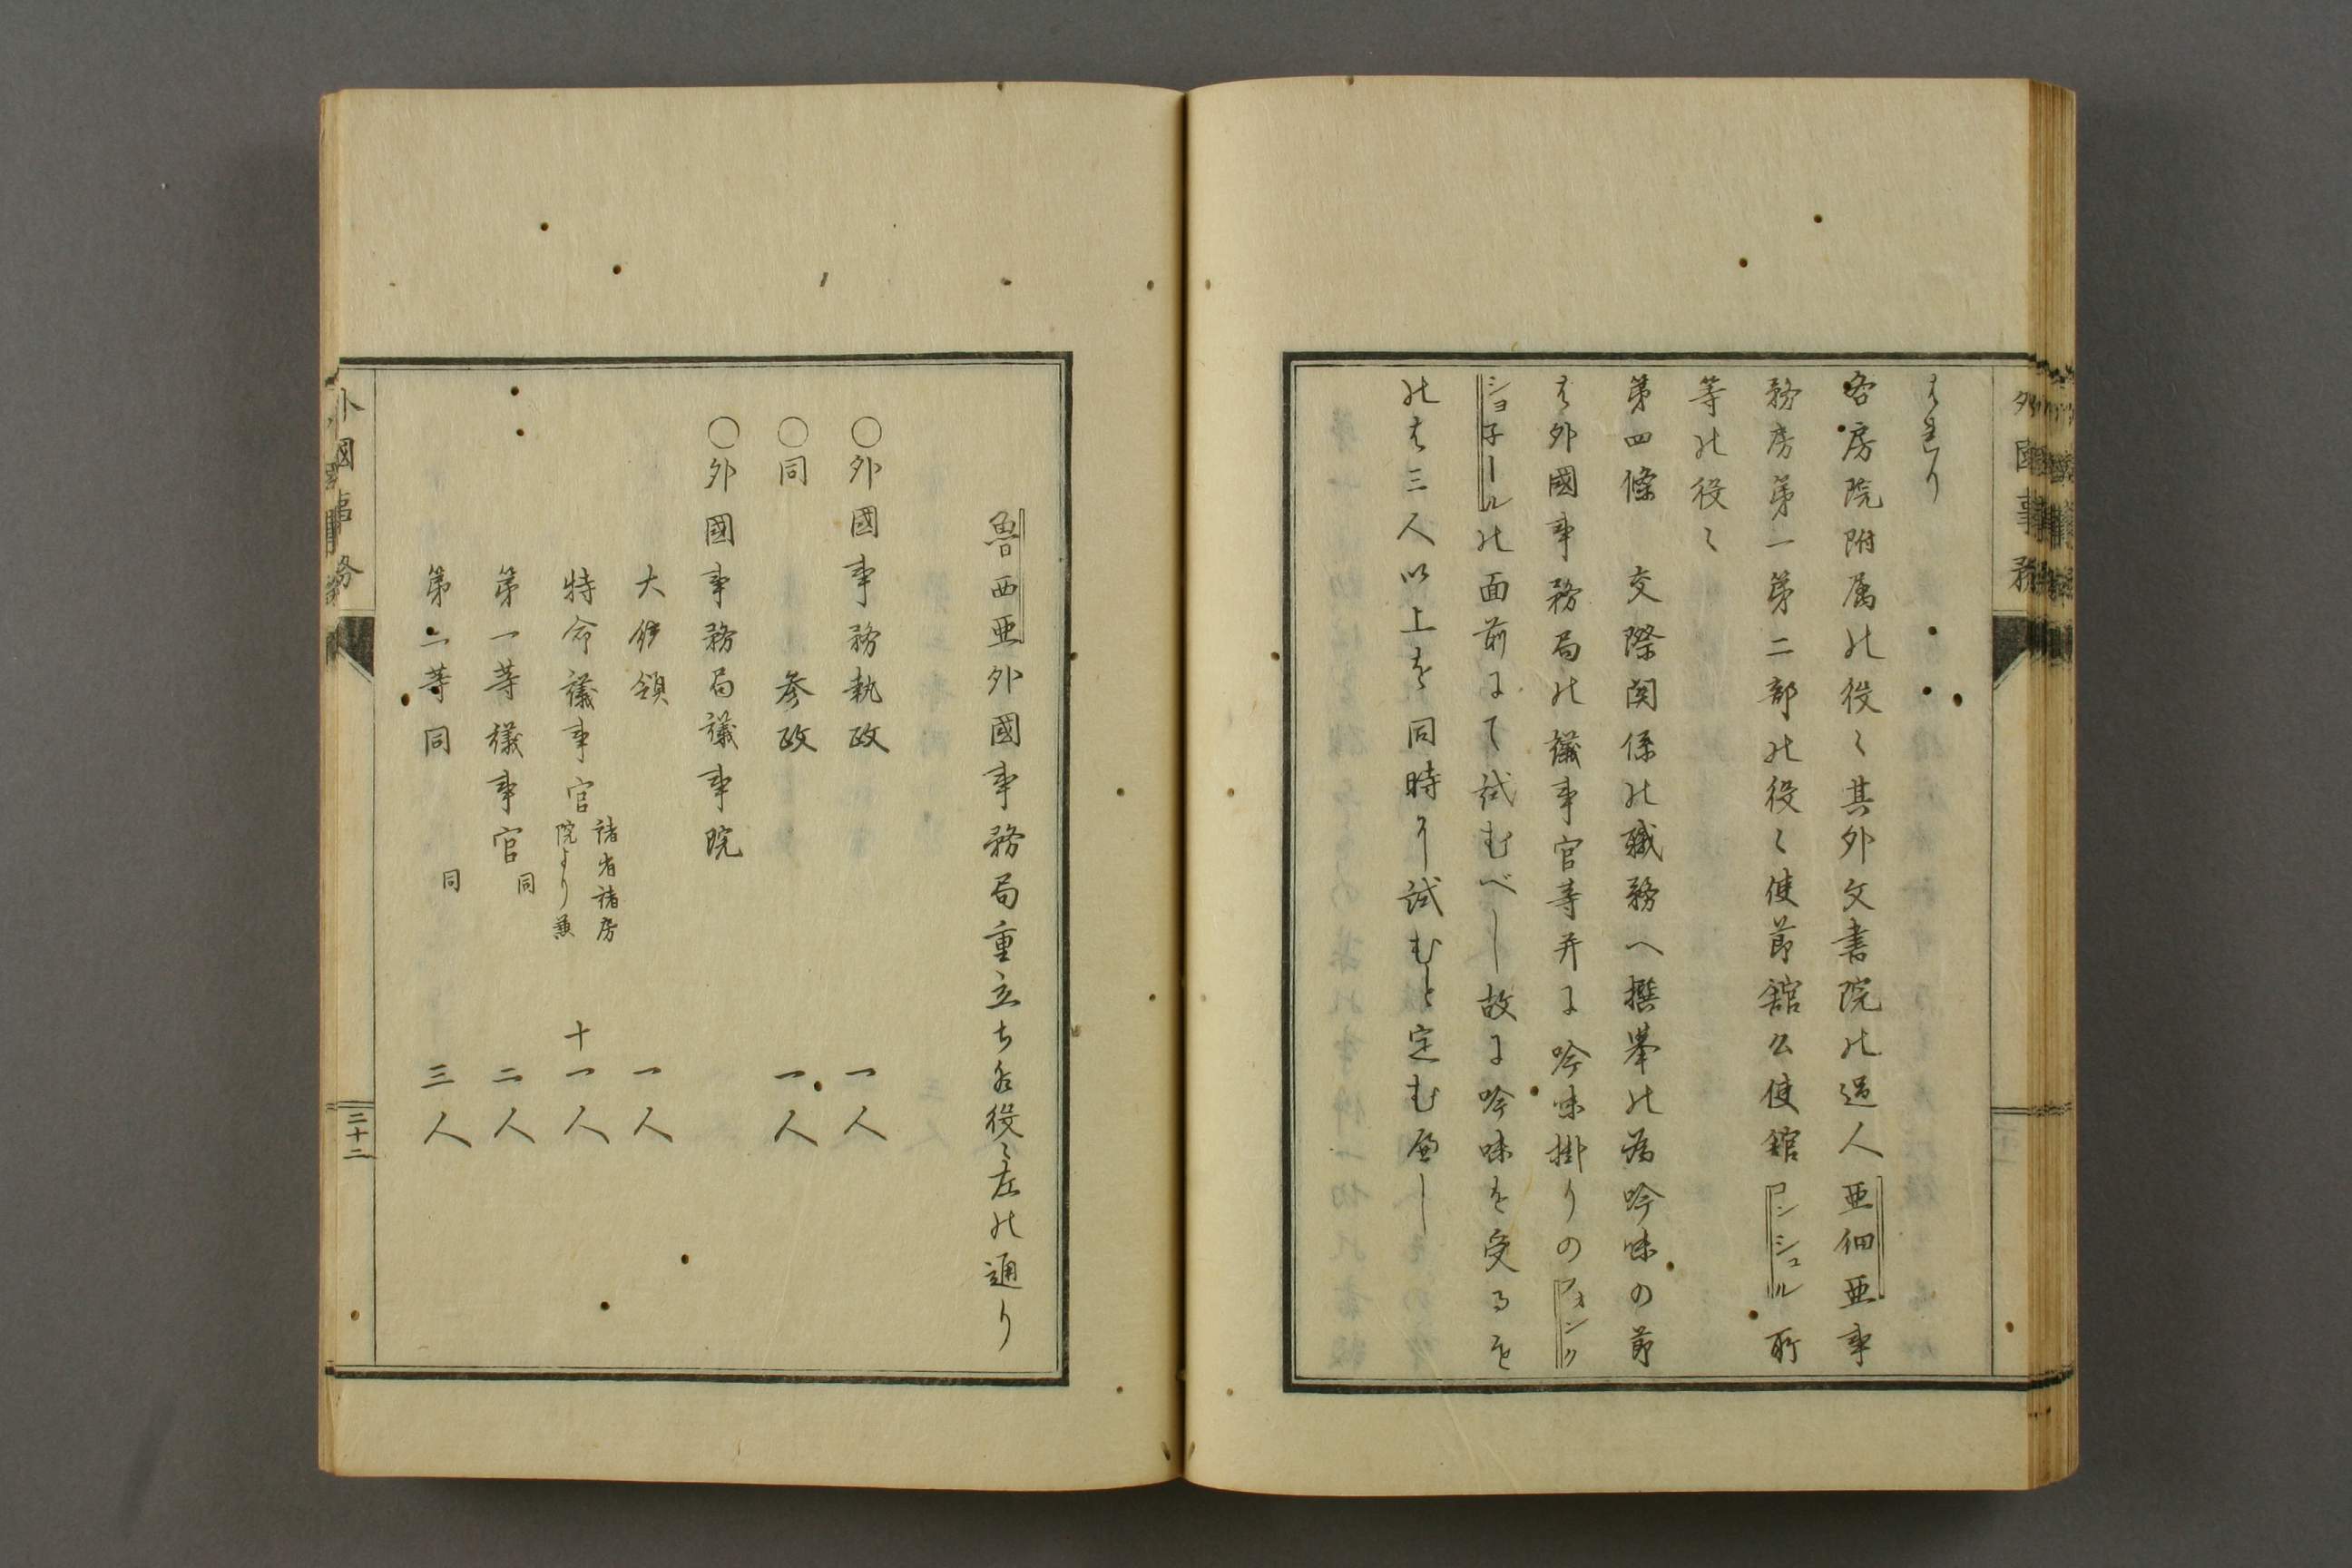 外國事務
各房院附属の役々其外文書院の過人亜細亜事
務房第一第二部の役々使節舘公使館コンシユル所
等の役々
第四條　交際関係の職務へ撰挙の為吟味の節
は外國事務局の議事官等并に吟味掛りのフオンク
シヨ子ールの面前にて試むべし故に吟味を受るも
のは三人以上を同時に試むと定む
魯西亜外國事務局重立ち役々左の通り
〇外國事務執政　一人
〇同　参政　一人
〇外國事務局議事院
大　領　一人
特命議事官　諸省諸房院より兼　十一人
第一等議事官　同　二人
第二等同　同　三人
外國事務
二十二